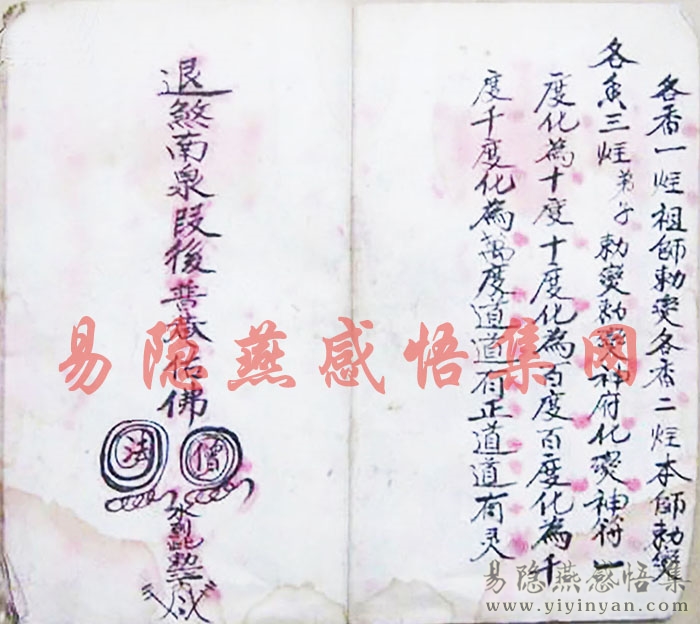 各香一炷祖師勅变各香二炷本師勅變
各香三炷弟子勅变勅变神府化变神符一
度化為十度十度化為百度百度化為千
度千度化為萬度道道有正道道有灵
退煞南泉段後普菴佑佛
法 僧
水到此勅
易隐燕感悟集网
易隐燕感悟集
www.yiyinyan.com